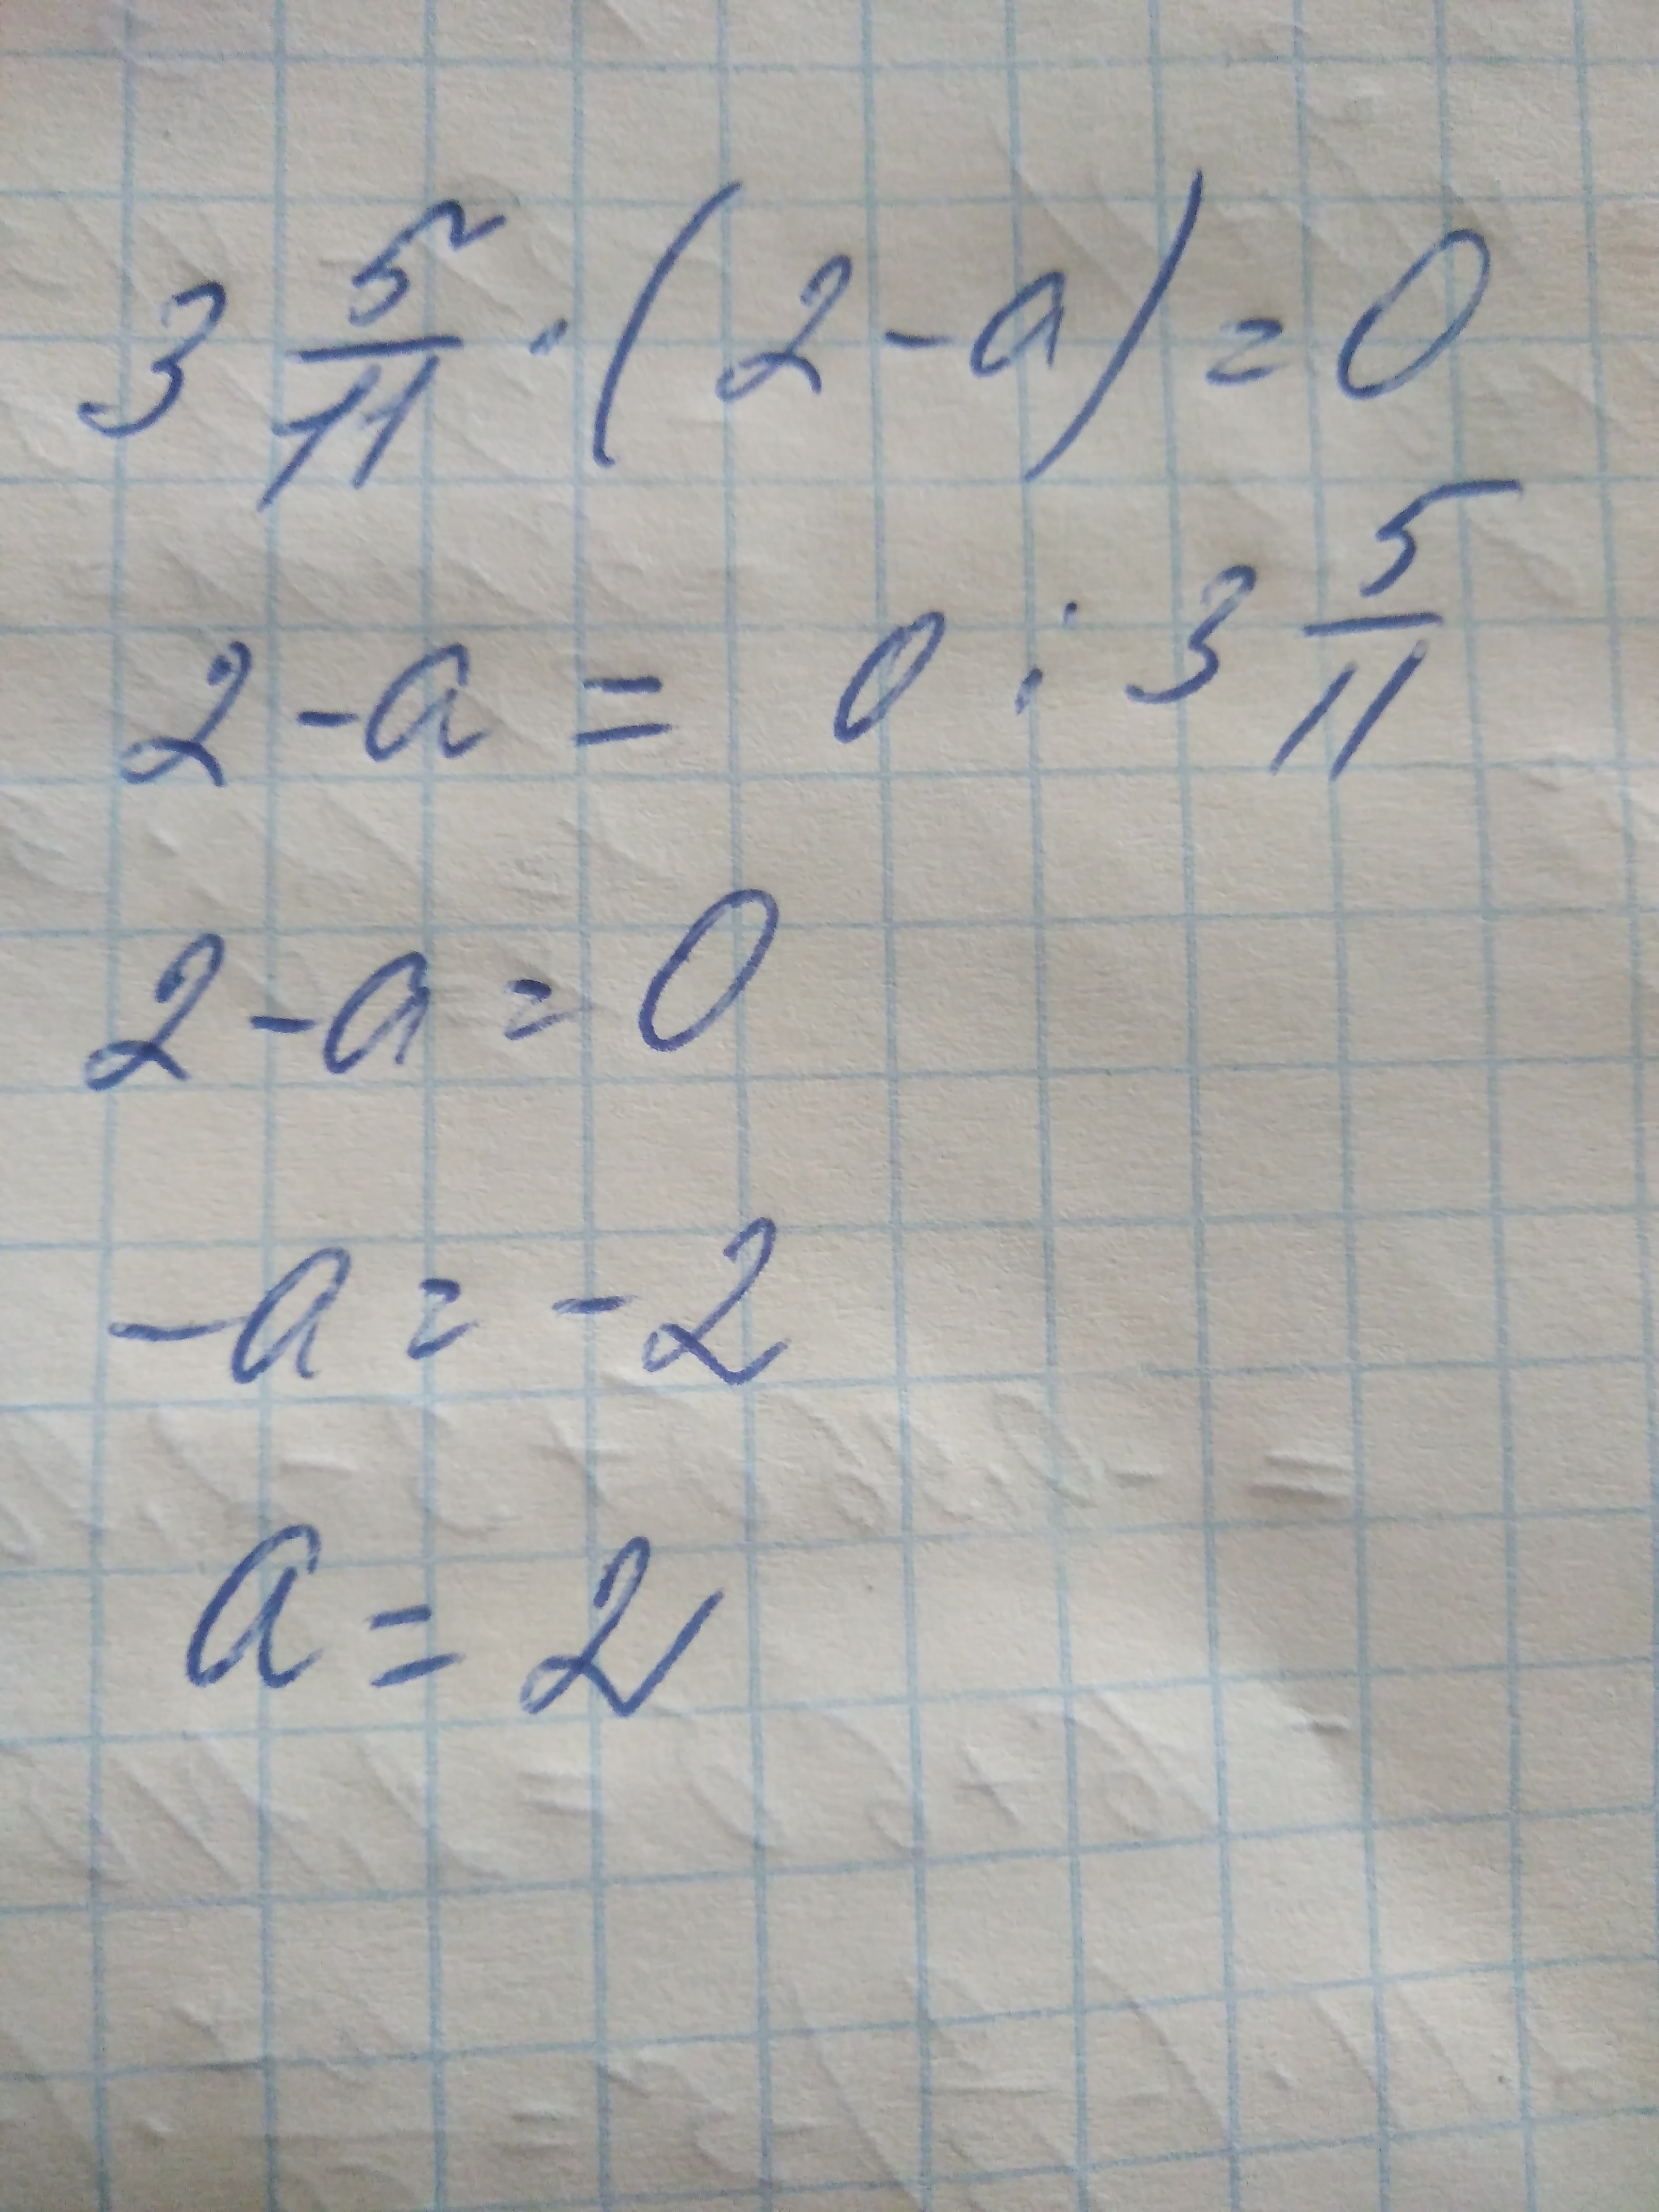 3 5/11 · (2 - a) = 0
2 - a = 0 : 3 5/11
2 - a = 0
- a = - 2
a = 2